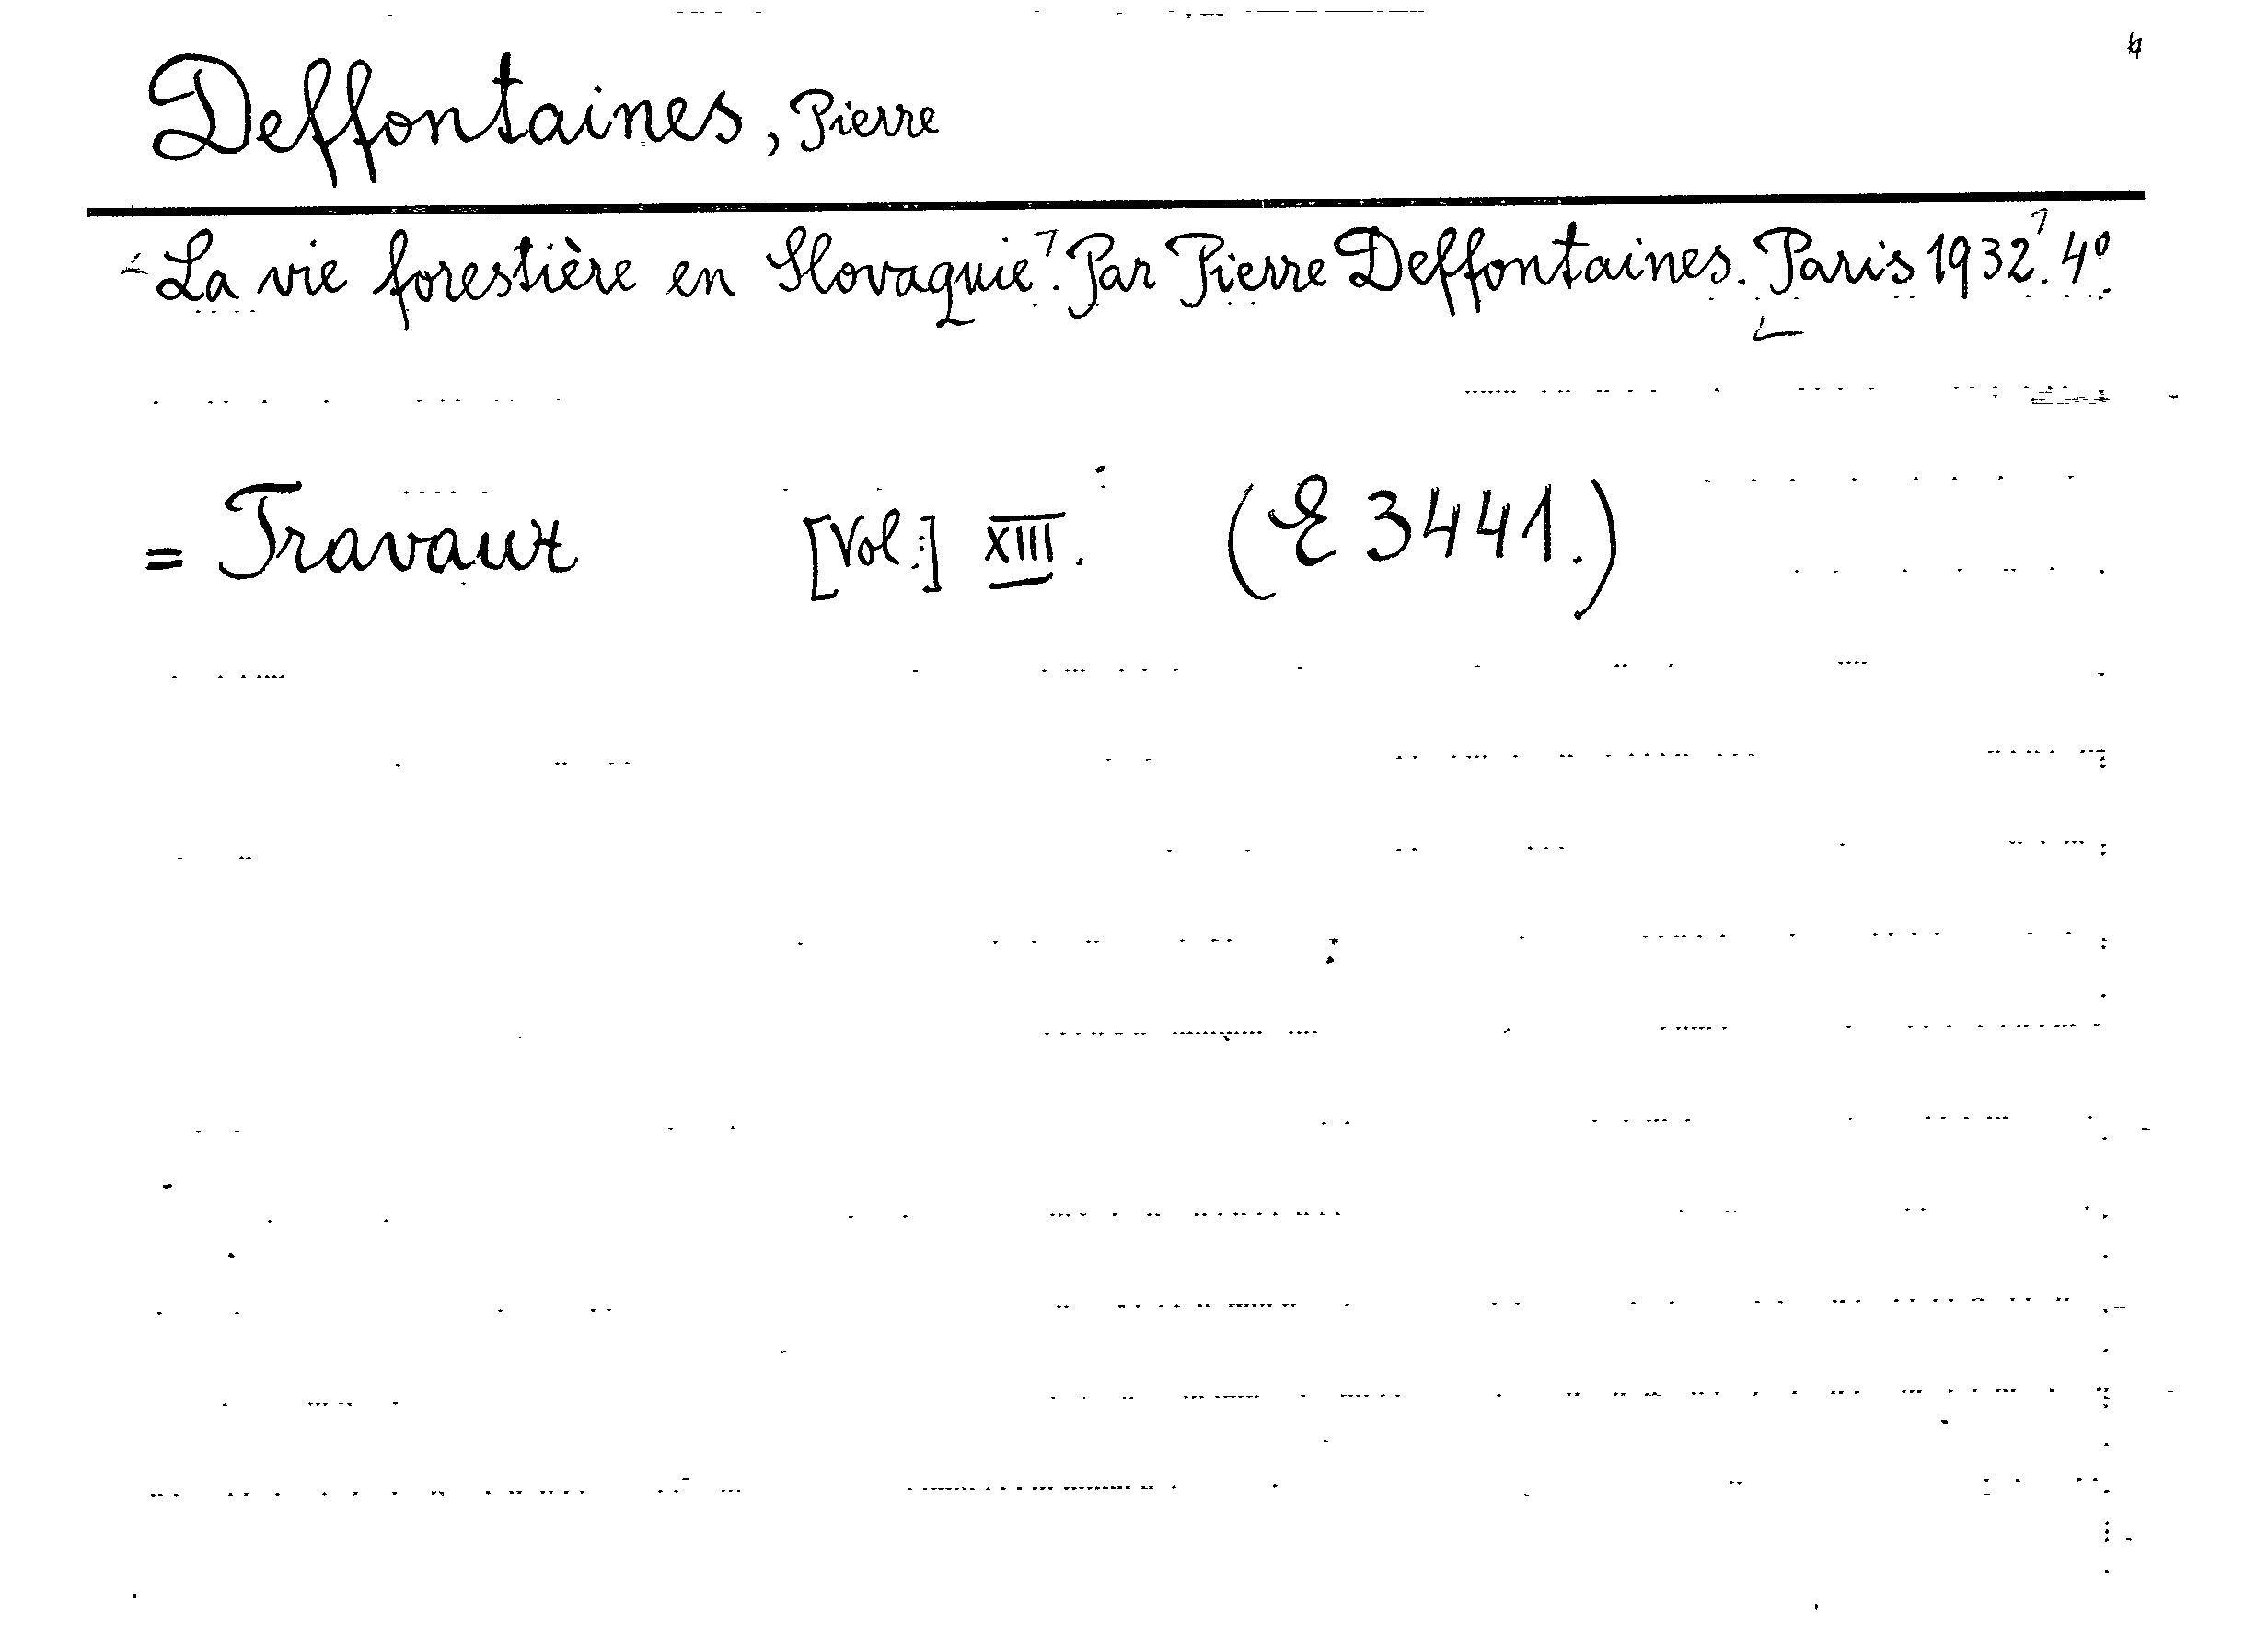 Deffontaines, Pierre
La vie forestière en Slovaquie. Par Pierre Deffontaines. Paris 1932. 4º
= Travaux [Vol.:] XIII. (E 3441.)